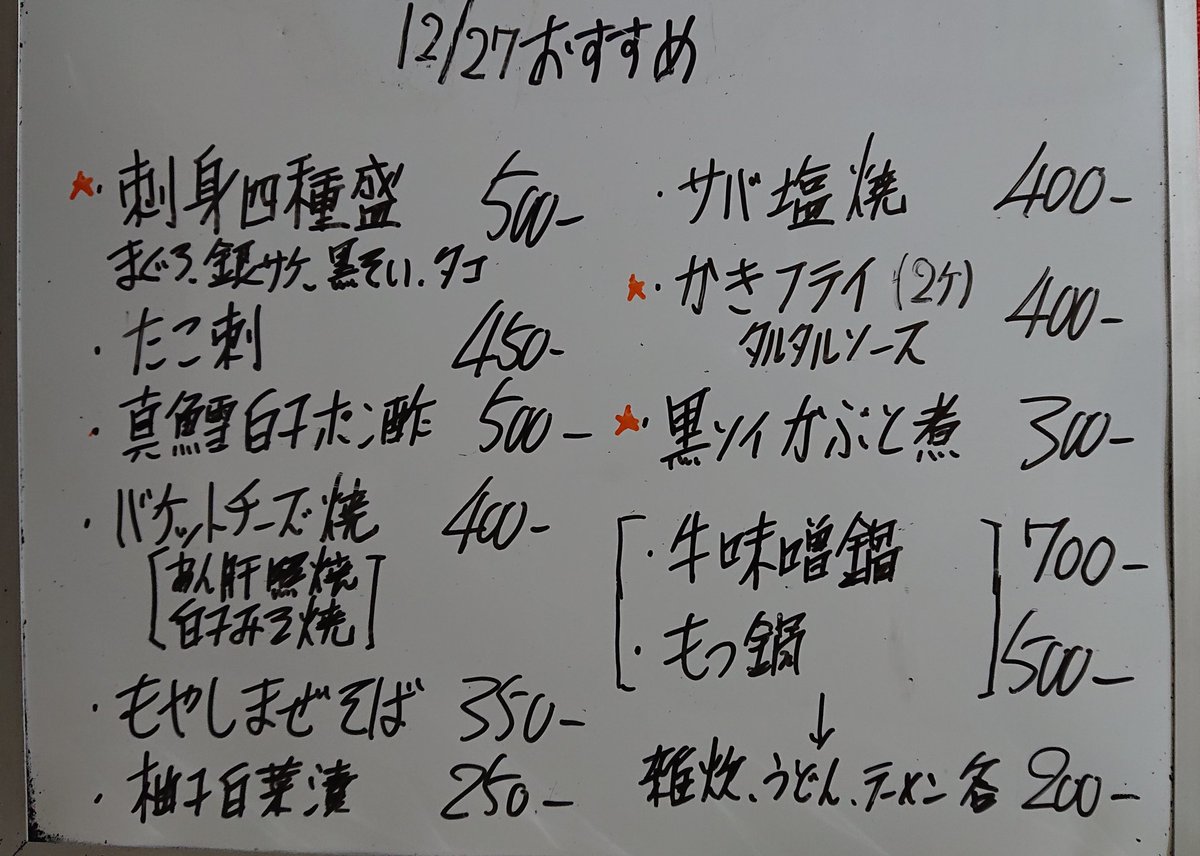 12/27おすすめ
★・刺身四種盛 500-
まぐろ、銀サケ、黒そい、タコ
・たこ刺 450-
・真鱈白子ポン酢 500-
・バケットチーズ焼 400-
[あん肝照焼
白子みそ焼]
・もやしまぜそば 350-
・柚子白菜漬 250-
・サバ塩焼 400-
★・かきフライ(2ケ) 400-
タルタルソース
★・黒ソイかぶと煮 300-
[・牛味噌鍋] 700-
[・もつ鍋] 500-
↓
雑炊、うどん、ラーメン各 200-